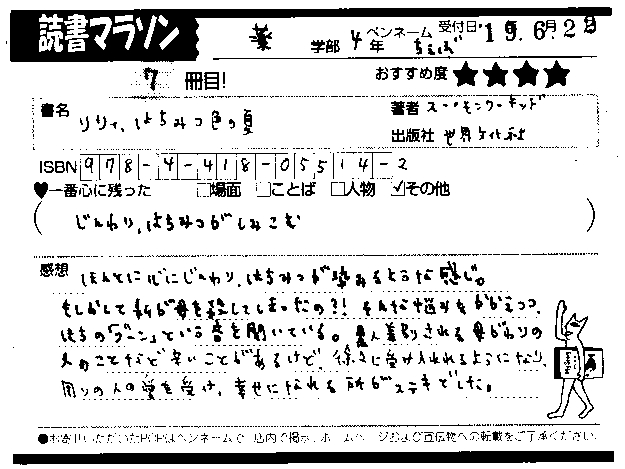 読書マラソン 薬 学部 4年 ペンネーム ちえぞ 受付日 '19.6月22
7 冊目! おすすめ度 ★★★★
書名 リリィ、はちみつ色の夏 著者 スー・モンク・キッド
出版社 世界文化社
ISBN 978-4-418-05514-2
♥一番心に残った □場面 □ことば □人物 ☑その他
( じんわり、はちみつがしみこむ )
感想 ほんとに心にじんわり、はちみつが染みるような感じ。
もしかして私が母を殺してしまったの?! そんな悩みをかかえつつ、
はちの「ブーン」という音を聞いている。黒人差別される母がわりの
人のことなど辛いことがあるけど、徐々に受け入れれるようになり、
周りの人の愛を受け、幸せになれる所がステキでした。
●お寄せいただいたPOPはペンネームで、店内で掲示、ホームページおよび宣伝物への転載をご了承ください。